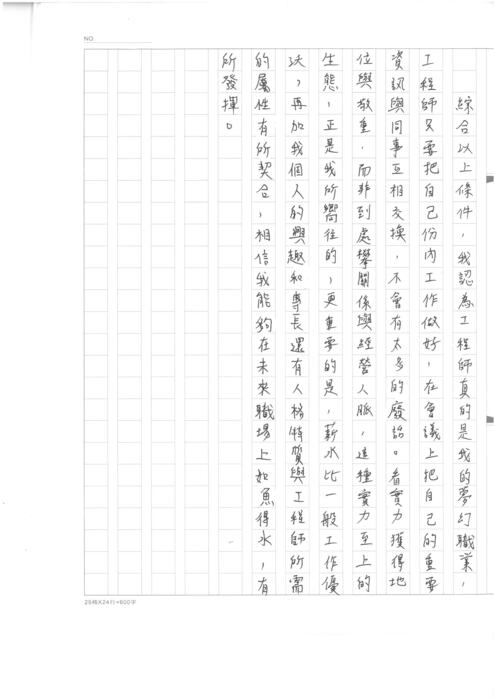 NO.
綜合以上條件，我認為工程師真的是我的夢幻職業，
工程師只要把自己份內工作做好，在會議上把自己的重要
資訊與同事互相交換，不會有太多的廢話。看實力獲得地
位與敬重，而非到處攀關係與經營人脈，這種實力至上的
生態，正是我所嚮往的，更重要的是，薪水比一般工作優
渥，再加我個人的興趣和專長還有人格特質與工程師所需
的屬性有所契合，相信我能夠在未來職場上如魚得水，有
所發揮。
25格X24行=600字